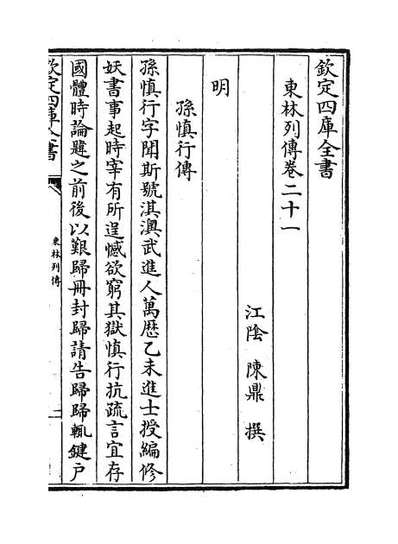 欽定四庫全書
東林列傳卷二十一
江陰 陳鼎 撰
明
孫慎行傳
孫慎行字聞斯號淇澳武進人萬歷乙未進士授編修
妖書事起時宰有所逞憾欲窮其獄慎行抗疏言宜存
國體時論韙之前後以艱歸冊封歸請告歸歸輒鍵户
欽定四庫全書
東林列傳